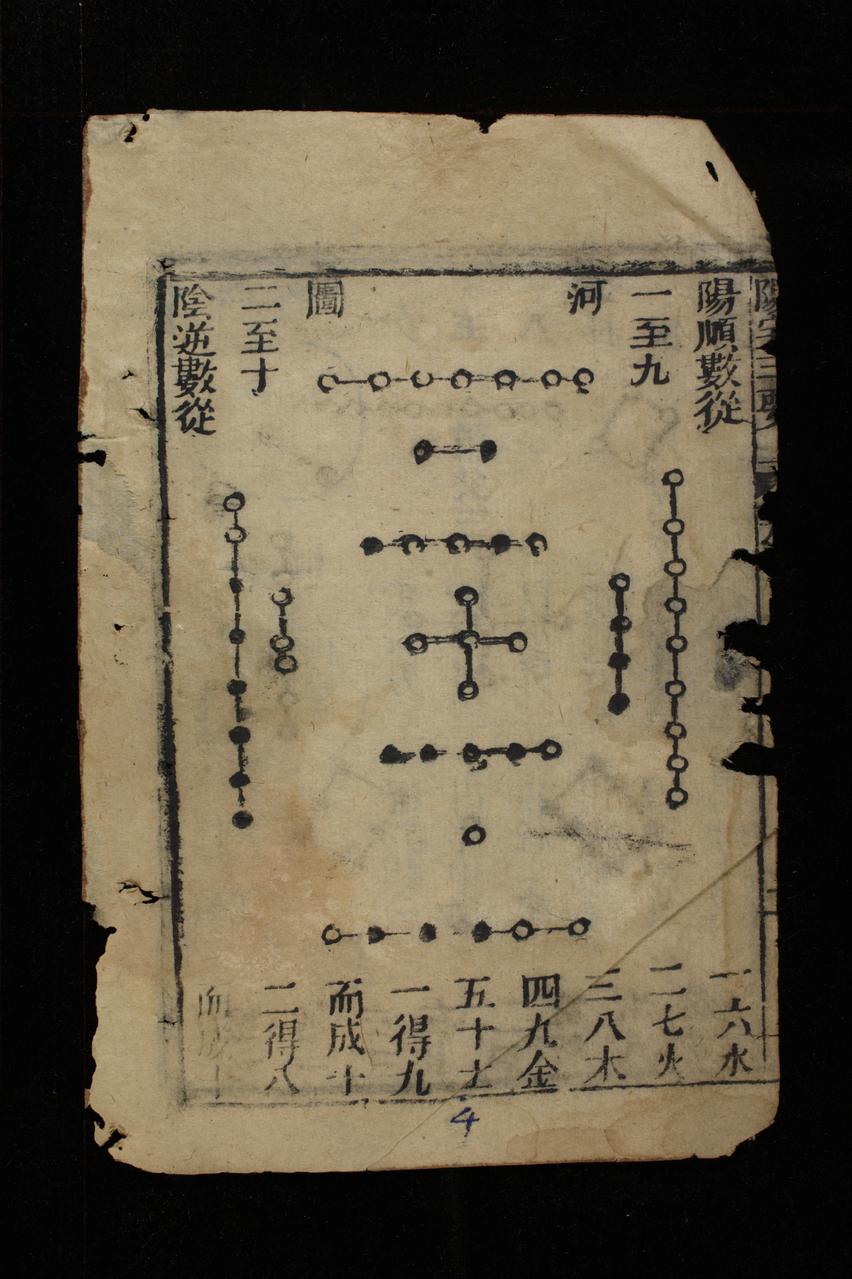 陽宅三要
陽順數從
一至九
河
圖
二至十
陰逆數從
一六水
二七火
三八木
四九金
五十土
一得九
而成十
二得八
而成十
4